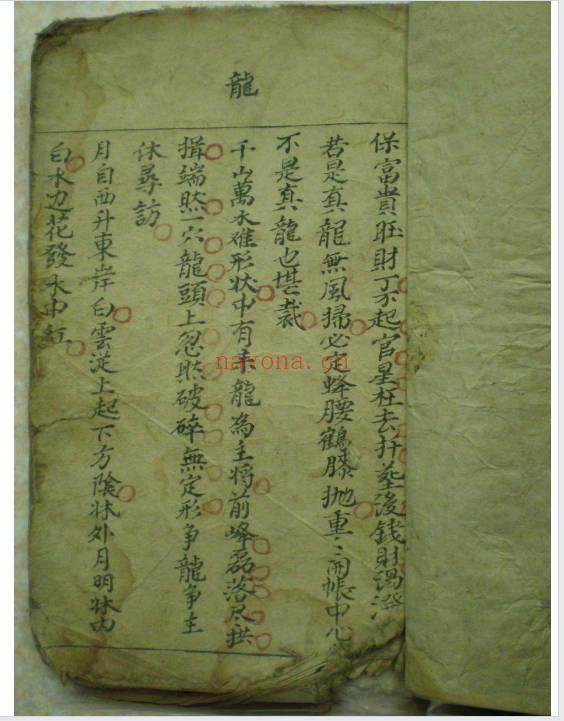 龍
保富貴旺財丁不起官星枉去扦塟後錢財湯潑
若是真龍無風掃必定蜂腰鶴膝抛重〻開帳中心
不是真龍也堪裁
千山萬水雖形状中有来龍為主将前峰磊落尽拱
揖端然一穴龍頭上忽然破碎無定形争龍争主
休尋訪
月自西升東岸白雲従上起下方陰林外月明林内
白水边花發水中紅
nayona.cn